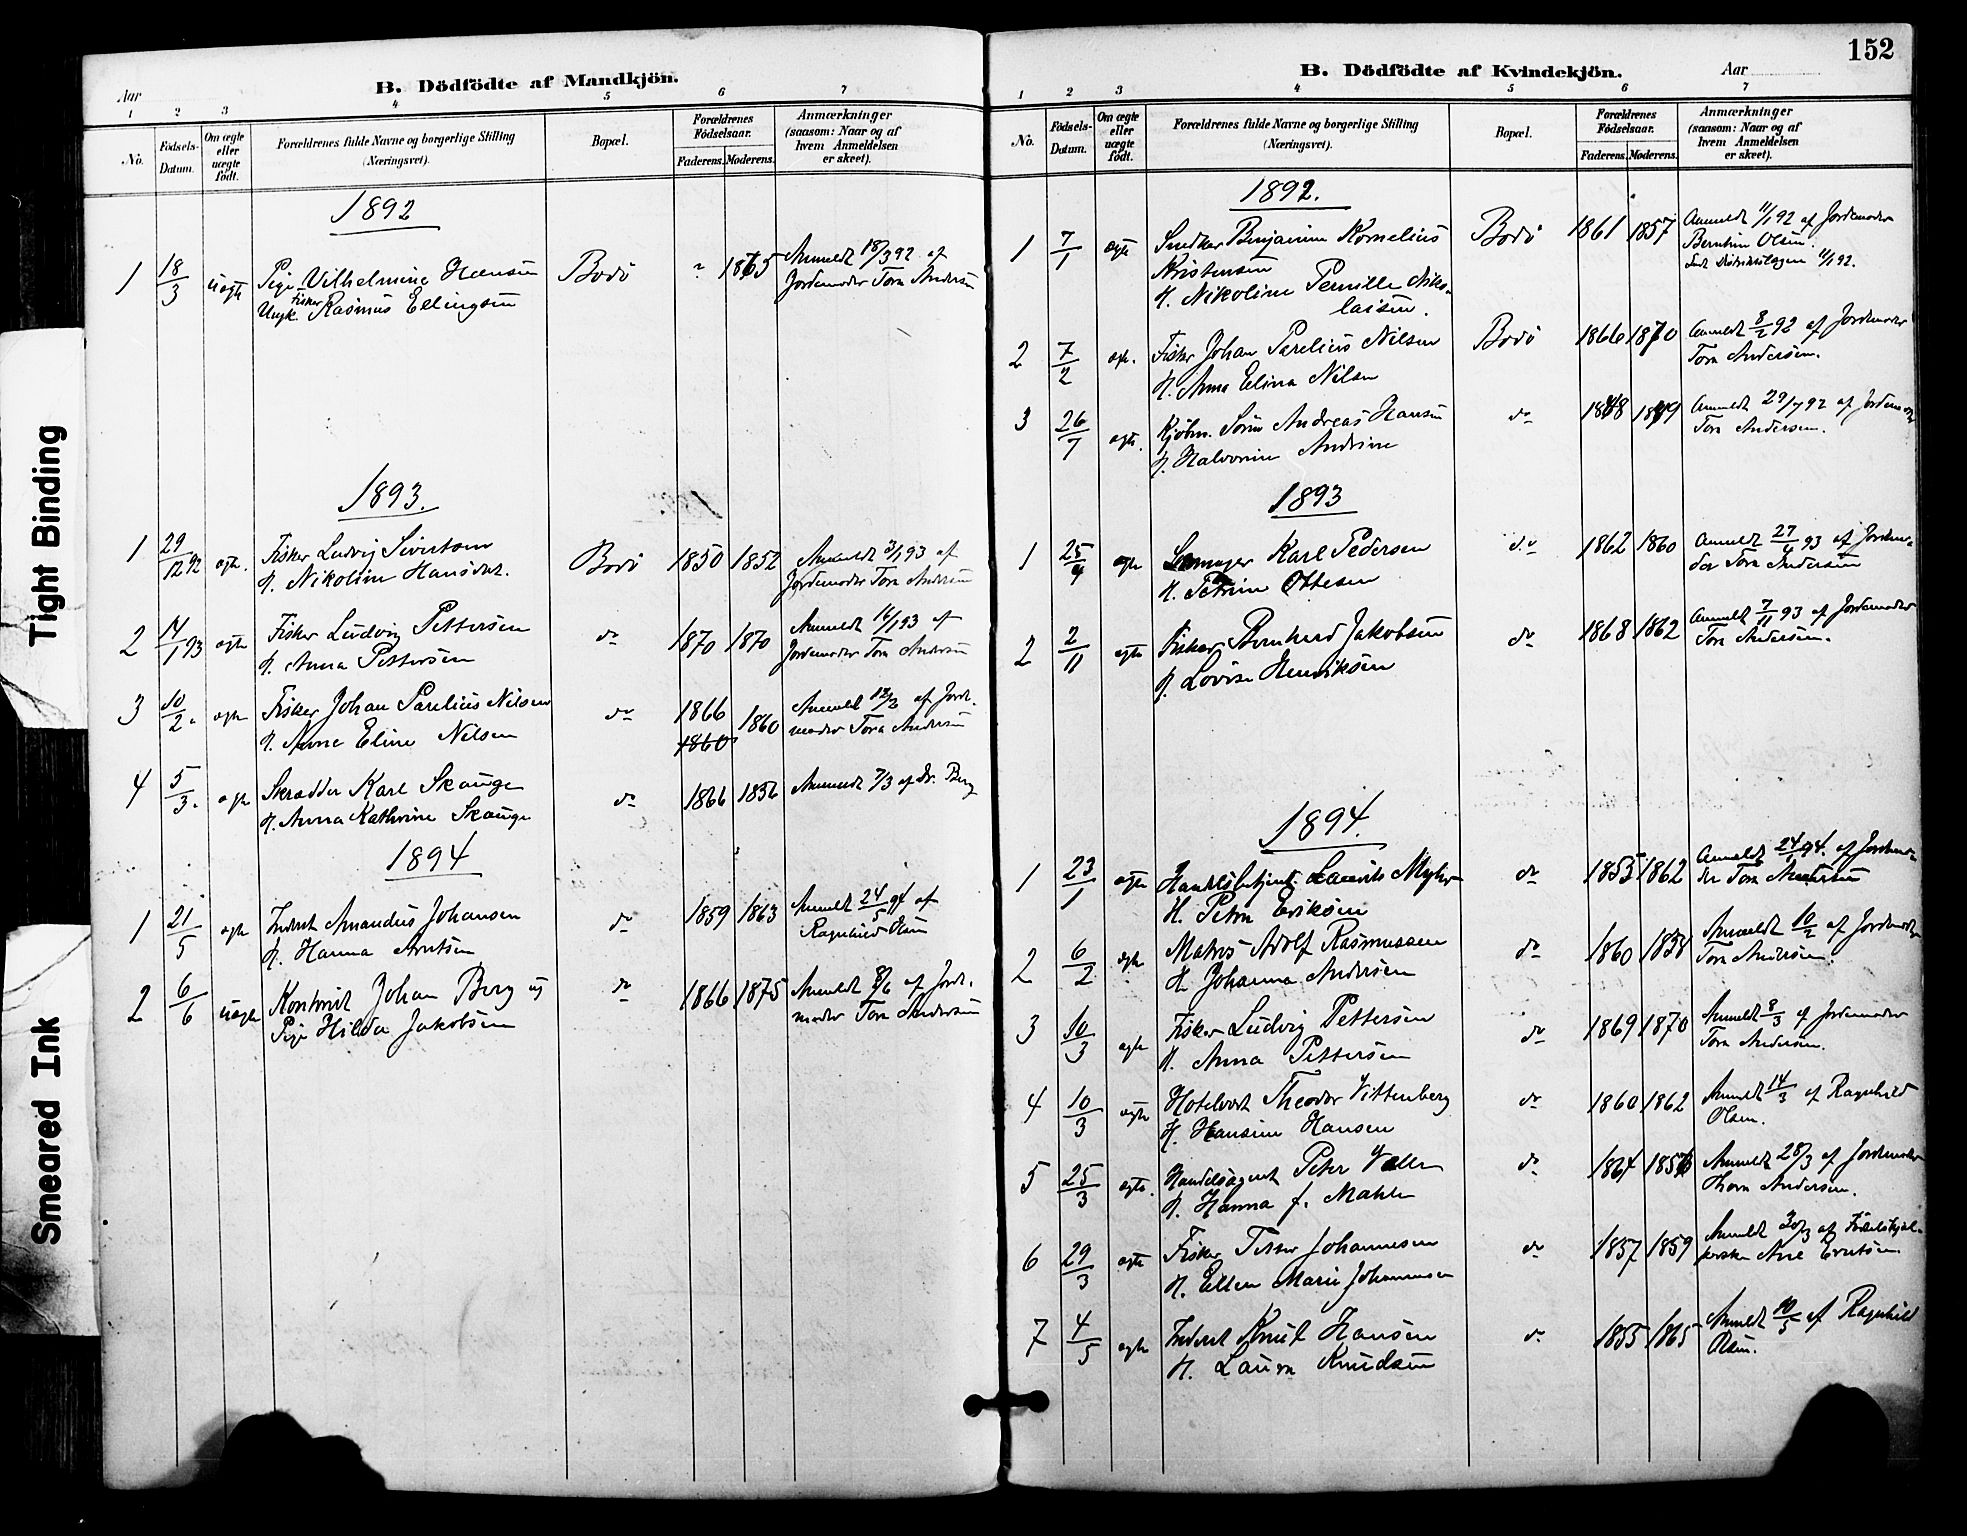 Tight Binding
Smeared Ink
B. Dödfödte af Mandkjön.
Aar
1 2 3 4 5 6 7
No.
Födsels-
Datum.
Om ægte
eller
uægte
födt.
Forældrenes fulde Navne og borgerlige Stilling
(Næringsvei).
Bopæl.
Forældrenes
Födselsaar.
Faderens. Moderens.
Anmærkninger
(saasom: Naar og af
hvem Anmeldelsen
er skeet).
1892
1 18/3 uægte Pige Vilhelmine Hansen Bodö ? 1865 Anmeldt 18/3 92 af
Ungk. Fisker Rasmus Ellingsen Jordemoder Tora Andersen
1893.
1 29/12 92 ægte. Fisker Ludvig Sivertsen Bodö 1850 1852 Anmeldt 3/1 93 af
H. Nikoline Hansdat. Jordemoder Tora Andersen
2 14/1 93 ægte Fisker Ludvig Pettersen do 1870 1870 Anmeldt 16/1 93 af
H. Anna Pettersen Jordemoder Tora Andersen
3 10/2 ægte Fisker Johan Parelius Nilsen do 1866 1860 Anmeldt 12/2 af Jord.
H. Anne Eline Nilsen 1860 moder Tora Andersen
4 5/3 ægte Skrædder Karl Skauge do 1866 1856 Anmeldt 7/3 af Dr. Berg
H. Anna Kathrine Skauge
1894
1 21/5 ægte Inderst Amandus Johansen do 1859 1863 Anmeldt 24/5 94 af
H. Hanna Arntsen Ragnhild Olsen
2 6/6 uægte Kontorist Johan Berg og do 1866 1875 Anmeldt 8/6 af Jord.
Pige Hilda Jakobsen moder Tora Andersen
152
B. Dödfödte af Kvindekjön.
Aar
1 2 3 4 5 6 7
No.
Födsels-
Datum.
Om ægte
eller
uægte
födt.
Forældrenes fulde Navne og borgerlige Stilling
(Næringsvei).
Bopæl.
Forældrenes
Födselsaar.
Faderens. Moderens.
Anmærkninger
(saasom: Naar og af
hvem Anmeldelsen
er skeet).
1892.
1 7/1 ægte Snedker Benjamin Kornelius Bodö 1861 1857 Anmeldt 11/1 92 af Jordemoder
Kristensen Berntine Olsen.
H. Nikoline Pernille Niko- 11/1 92.
laisen.
2 7/2 ægte. Fisker Johan Parelius Nilsen Bodö 1866 1870 Anmeldt 8/2 92 af Jordemoder
H. Anna Elina Nilsen Tora Andersen.
3 26/7 ægte. Kjøbm. Sören Andreas Hansen do 1848 1849 Anmeldt 29/7 92 af Jordemoder
H. Halvorine Andrine Tora Andersen.
1893
1 25/4 ægte Karl Pedersen do 1862 1860 Anmeldt 27/4 93 af Jordemo-
H. Petrine Ottesen der Tora Andersen
2 2/11 ægte Fisker Bernhard Jakobsen do 1868 1862 Anmeldt 7/11 93 af Jordemoder
H. Lovise Henriksen Tora Andersen.
1894.
1 23/1 ægte Handelsbetjent Laurits Myhre do 1855 1862 Anmeldt 24/1 94. af Jordemo-
H. Petra Eriksen der Tora Andersen
2 6/2 ægte Matros Adolf Rasmussen do 1860 1858 Anmeldt 10/2 af Jordemoder
H. Johanna Andersen Tora Andersen.
3 10/3 ægte Fisker Ludvig Pettersen do 1869 1870 Anmeldt 8/3 af Jordemoder
H. Anna Pettersen Tora Andersen.
4 10/3 ægte Hotelvært Theodor Vittenberg do 1860 1862 Anmeldt 14/3 af Ragnhild
H. Hansine Hansen Olsen.
5 25/3 ægte. Handelsagent Peter do 1864 1856 Anmeldt 28/3 af Jordemoder
H. Hanna f. Thora Andersen.
6 29/3 ægte Fisker Petter Johannesen do 1857 1859 Anmeldt 30/3 af
H. Ellen Marie Johannesen
7 4/5 ægte Inderst Knut Hansen do 1855 1865 Anmeldt 10/5 af Ragnhild
H. Laura Knudsen Olsen.